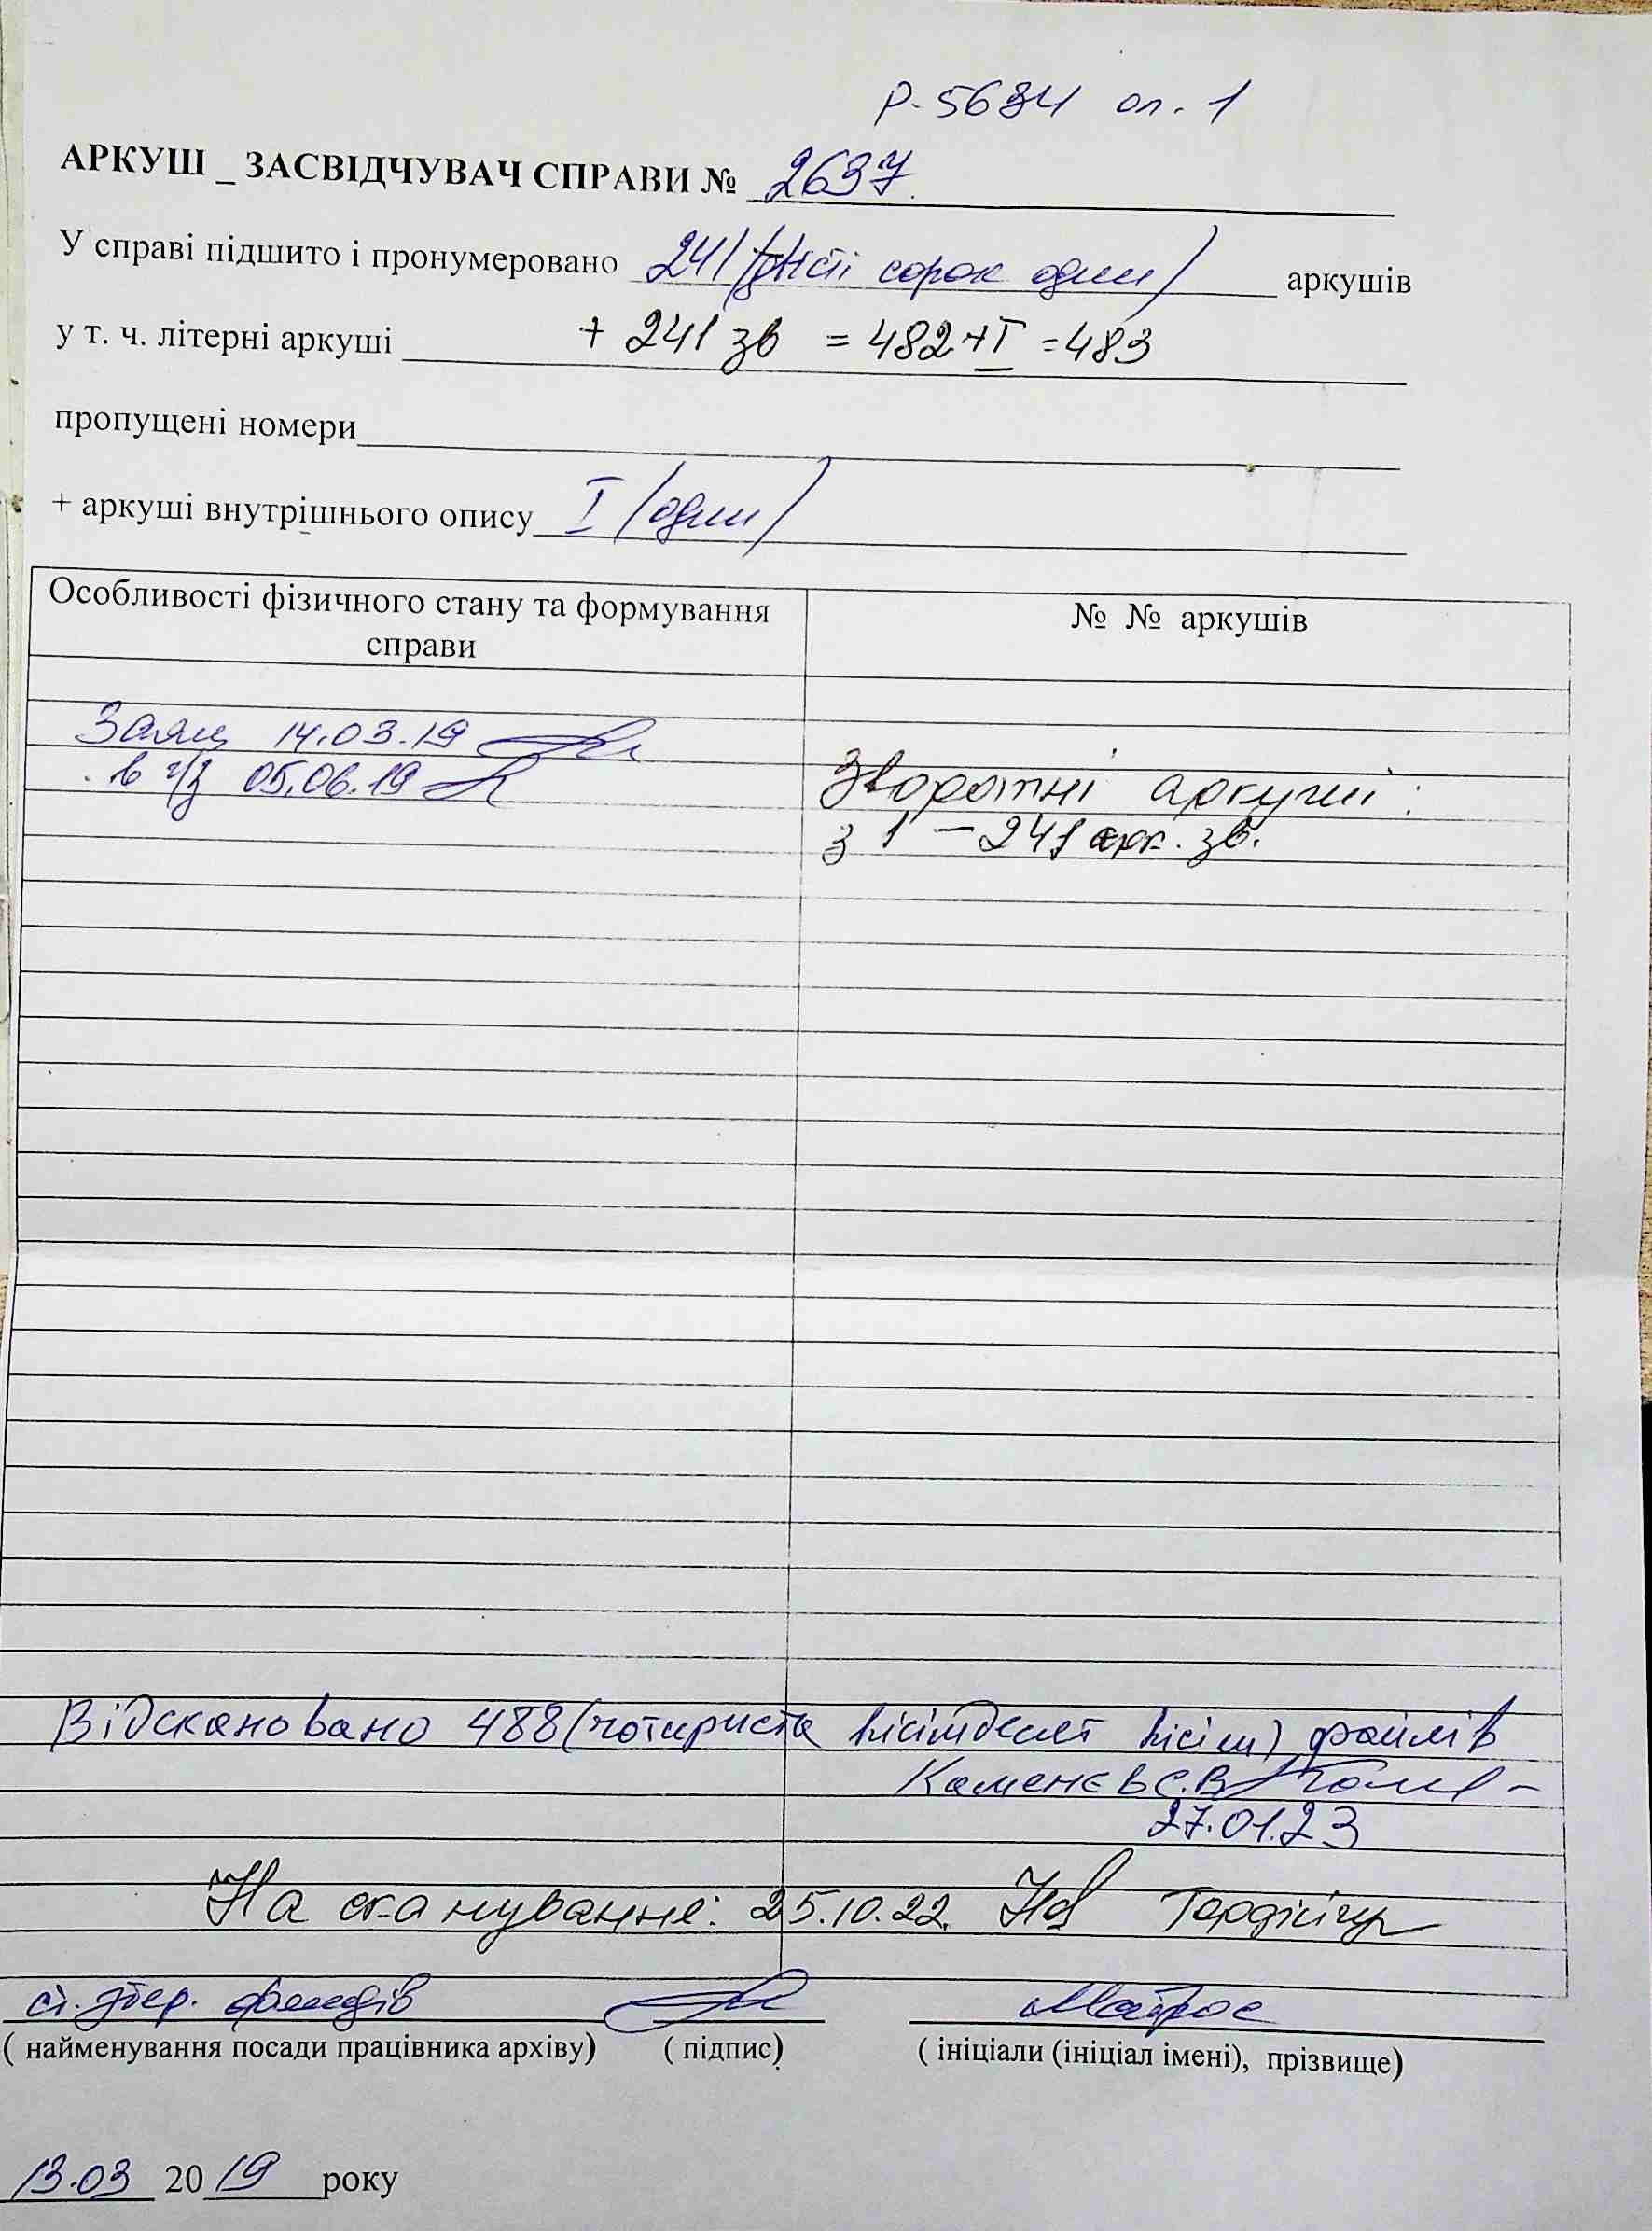 Р-5634 оп. 1
АРКУШ _ ЗАСВІДЧУВАЧ СПРАВИ № 2637.
У справі підшито і пронумеровано 241 /двісті сорок один/ аркушів
у т. ч. літерні аркуші + 241 зв = 482 + I = 483
пропущені номери
+ аркуші внутрішнього опису I /один/
Особливості фізичного стану та формування справи
№ № аркушів
Заяц 14.03.19
в ч/з 05.06.19
Зворотні аркуші:
з 1 – 241 арк. зв.
Відскановано 488 (чотириста вісімдесят вісім) файлів
Каменєв С.В.
27.01.23
На сканування: 25.10.22.
ст. збер. фондів Матрос
( найменування посади працівника архіву) ( підпис) ( ініціали (ініціал імені), прізвище)
13.03 2019 року